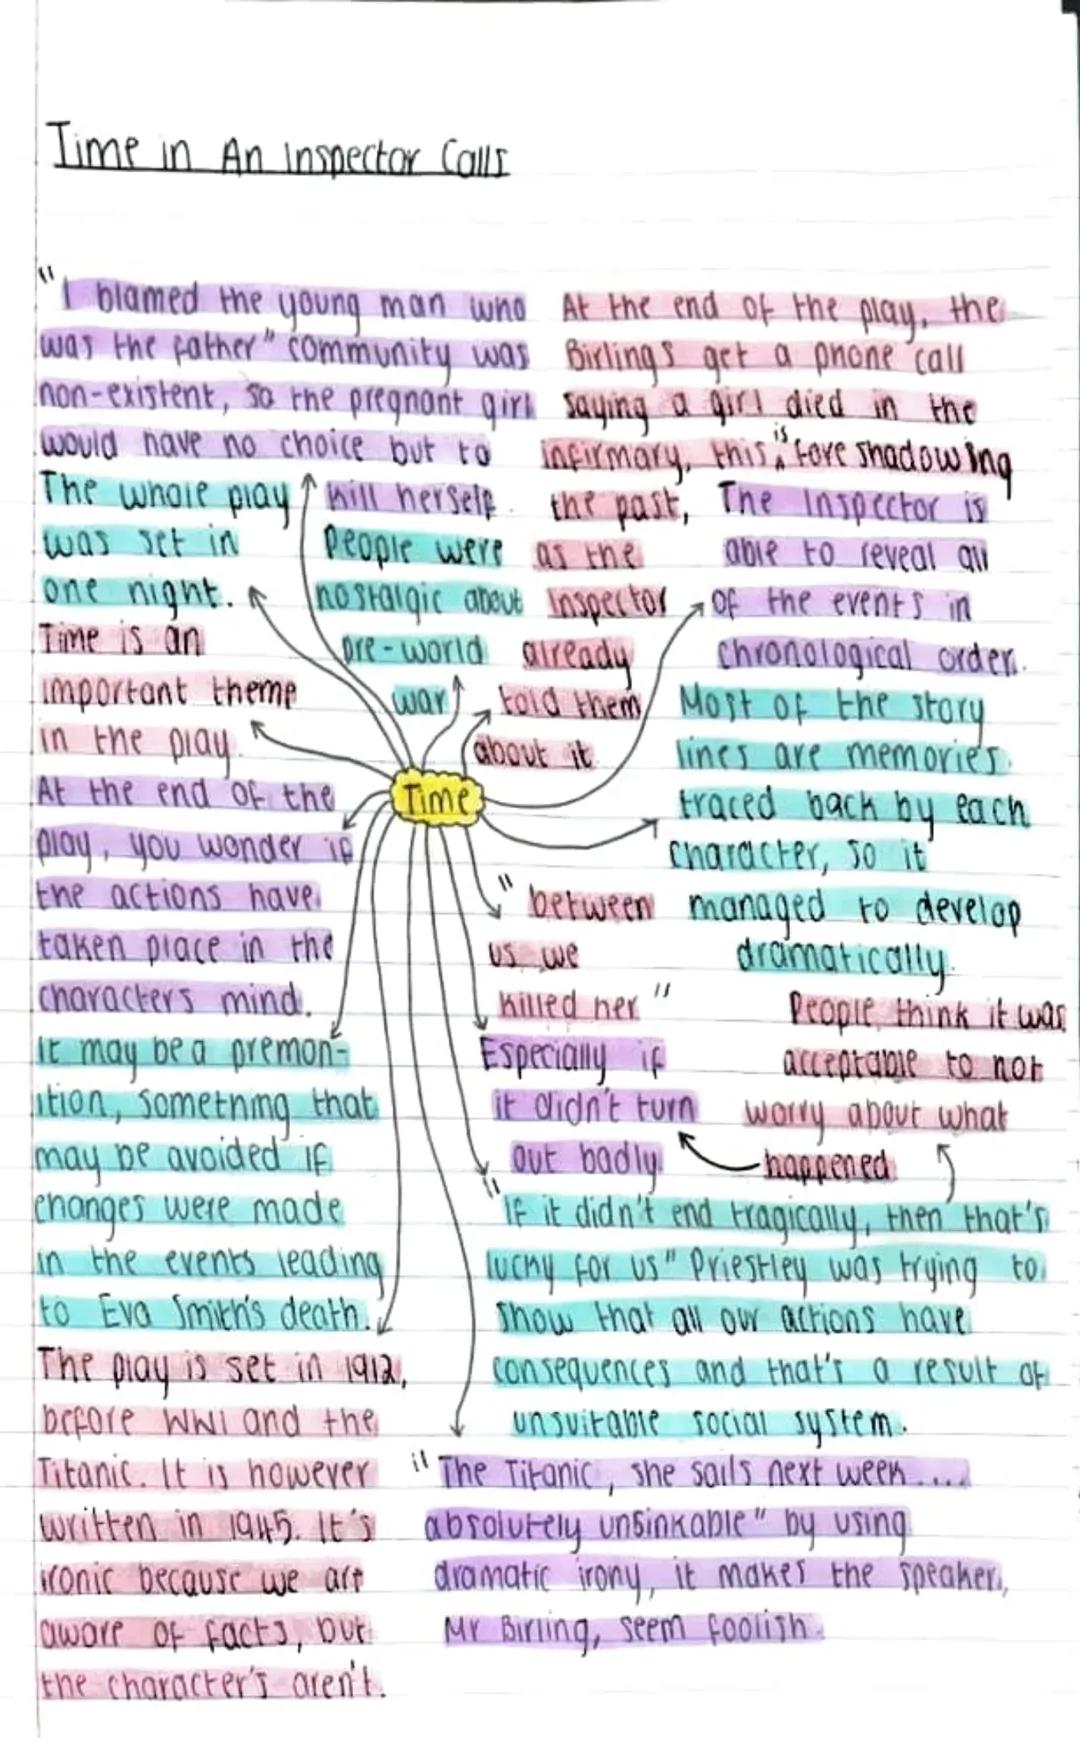 Time in An Inspector Calls
"I blamed the young man who
was the father" community was
non-existent, so the pregnant girl
would have no choice but to
kill herself.
The whole play
was set in
one night.
People were
nostalgic about
pre-world
war
At the end of the play, the
Birlings get a phone call
saying a girl died in the
infirmary, this is fore shadowing
the past,
as the
Inspector
already
told them
about it.
The Inspector is
able to reveal all
of the events in
chronological order.
Time is an
important theme
in the play.
Most of the story
lines are memories
traced back by each
character, so it
managed to develop
dramatically.
Time
At the end of the
play, you wonder if
the actions have
taken place in the
characters mind.
"between
us we
killed her"
It may be a premon-
ition, something that
may be avoided if
changes were made
in the events leading
to Eva Smith's death.
Especially if
it didn't turn
out badly.
People think it was
acceptable to not
worry about what
happened
"If it didn't end tragically, then that's
lucky for us" Priestley was trying to
show that all our actions have
consequences and that's a result of
unsuitable social system.
The play is set in 1912,
before WW1 and the
Titanic. It is however
written in 1945. It's
ironic because we are
aware of facts, but
the character's aren't.
"The Titanic, she sails next week....
absolutely unsinkable" by using
dramatic irony, it makes the speaker,
Mr Birling, seem foolish.